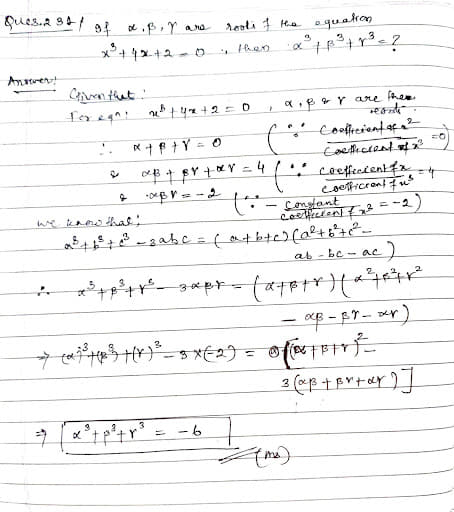 Ques. 234/ If α, β, γ are roots of the equation
x³ + 4x + 2 = 0 , then α³ + β³ + γ³ = ?
Answer:
Given that:
For eqn: x³ + 4x + 2 = 0 , α, β & γ are roots
∴ α + β + γ = 0 (∵ Coefficient of x² / Coefficient of x³ = 0)
& αβ + βγ + αγ = 4 (∵ coefficient of x / coefficient of x³ = 4
& αβγ = -2 (∵ - Constant / coefficient of x³ = -2)
we know that;
a³ + b³ + c³ - 3abc = (a+b+c)(a²+b²+c² -
ab - bc - ac)
∴ α³ + β³ + γ³ - 3αβγ = (α+β+γ)(α²+β²+γ²
- αβ - βγ - αγ)
⇒ (α)³ + (β)³ + (γ)³ - 3×(-2) = 0[(α+β+γ)² -
3(αβ + βγ + αγ)]
⇒ α³ + β³ + γ³ = -6
(Ans)